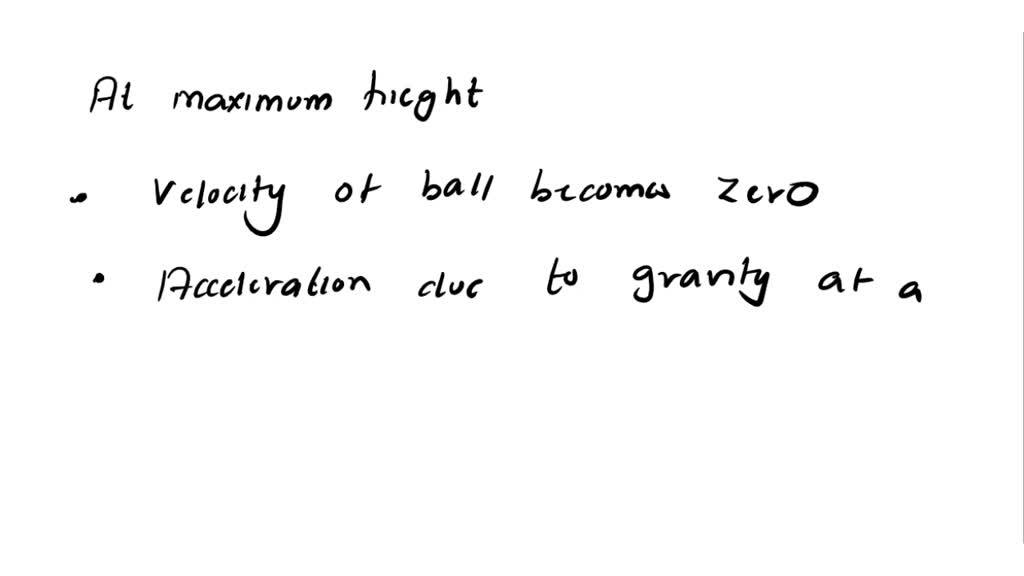 At maximum hieght
• Velocity of ball becomes zero
• Acceleration due to gravity at a